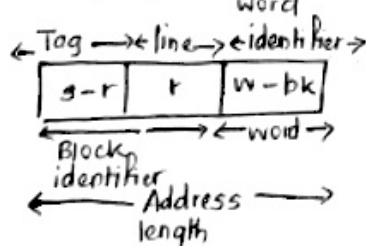 word
Tag line identifier
s-r r w-bk
Block word
identifier
Address
length